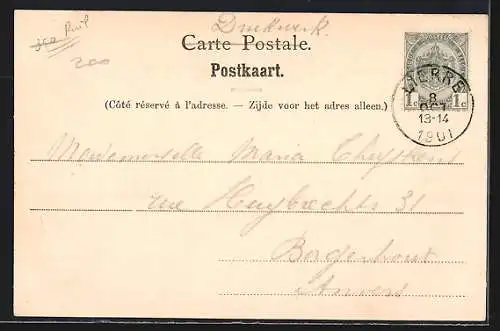 Drukwerk.
200
Carte Postale.
Postkaart.
(Côté réservé à l'adresse. — Zijde voor het adres alleen.)
1c 1c
LIERRE
8
OCT
13-14
1901
Mademoiselle Maria
rue Huybrechts 31
Borgerhout
Anvers